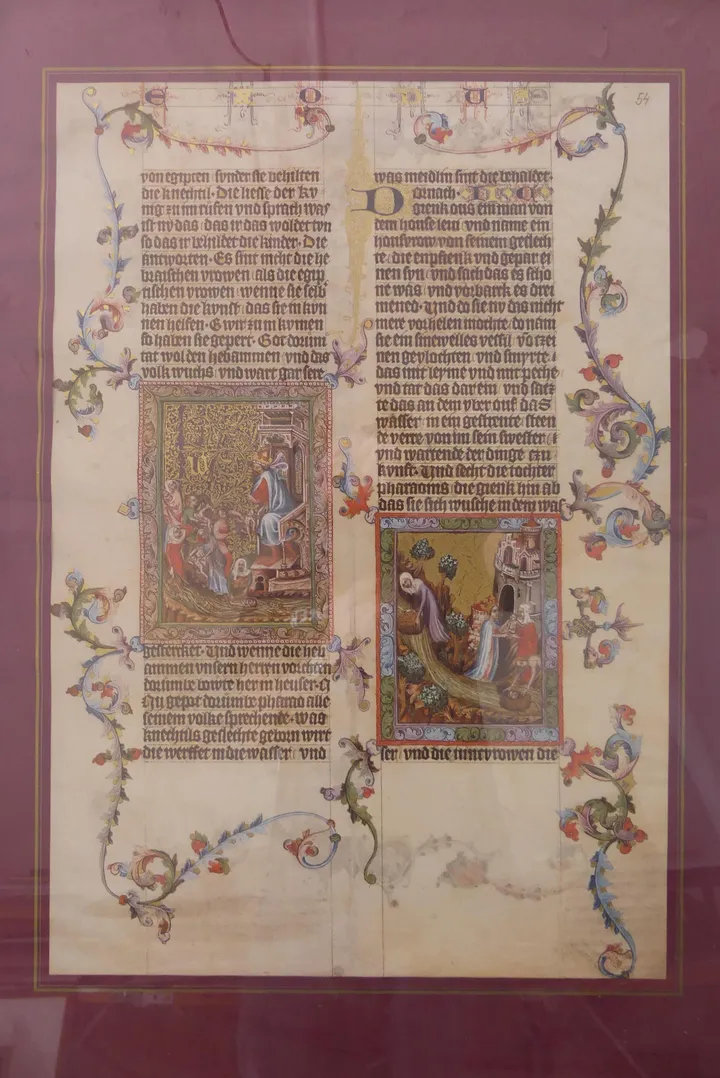 E X O D U S
54
von egipten · sunder sie behilten
die knechtil · Die liesse der ku
nig zu im rufen vnd sprach was
ist ny das · das ir da woldet tvn
so das ir behildet die kinder · Die
antworten · Es sint nicht die he
braischen vrowen · als die egip
tischen vrowen · wenne sie selb
haben die kunst · das sie in kyn
nen helfen · E wir zu in kymen
so haben sie gepert · Got dorum
tat wol den hebammen · vnd das
volk wuchs · vnd wart gar sere
gesterket · Und wenne die heb
ammen vnsern herren vorchten
dorumbe bowte her in heuser
gepot dorumbe pharao alle
seinem volke sprechende · was
knechtils geslechte geborn wirt
die werffet in die wasser · vnd
was meidlin sint die behaldet ·
Dornach · II · C ·
gienk ous ein man von
dem house leui · vnd name ein
housvrow von seinem geslech
te · die enpfienk vnd gepar ei
nen syn · vnd sach das es scho
ne was · vnd vorbark es drei
mened · Und do sie ny das nicht
mere vorhelen mochte · do nam
sie ein sinewelles vessil · vo tzei
nen gevlochten · vnd smyrte ·
das mit leyme vnd mit peche ·
vnd tat das dar ein · vnd satz
te das an dem vber ouf das
wasser · in ein gestreute · steen
de verre von im sein swester ·
vnd wartende der dinge czu
kvnft · Und secht die tochter
pharaonis · die gienk hin ab
das sie sich wusche in dem was
ser · vnd die iuncvrowen die